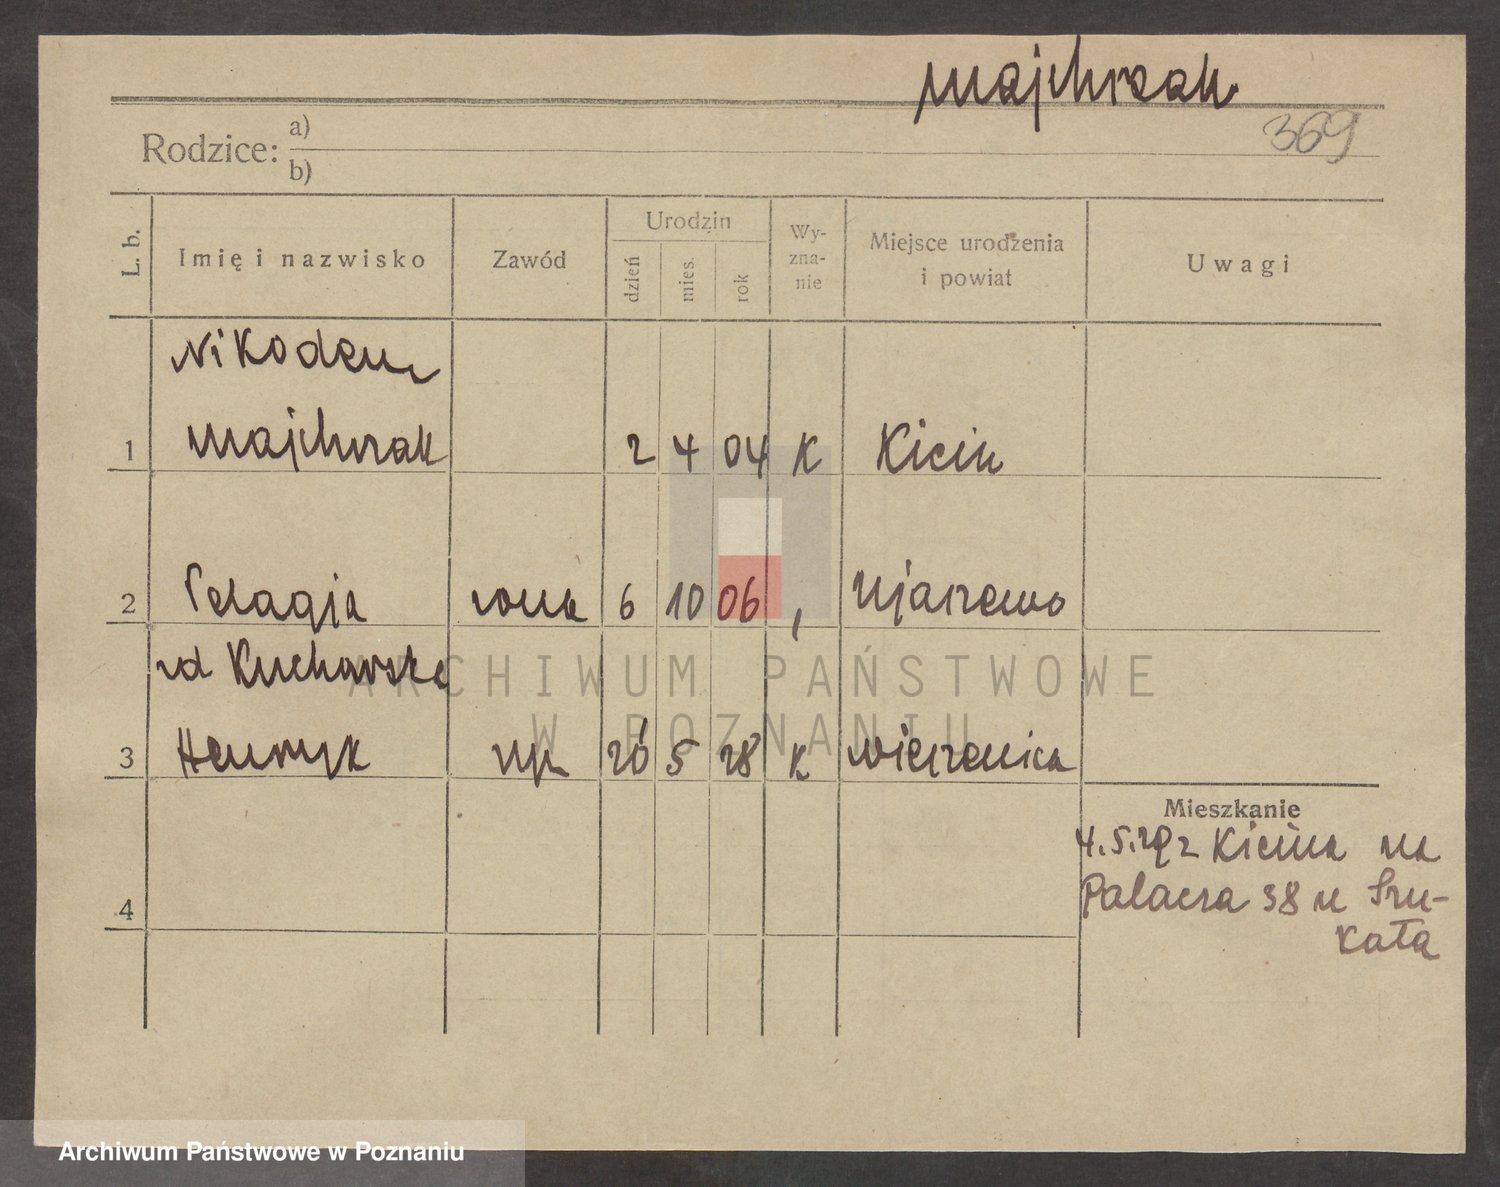 Majchrzak
369
Rodzice: a)
b)
L. b. Imię i nazwisko Zawód Urodzin dzień mies. rok Wy-zna-nie Miejsce urodzenia i powiat Uwagi
Nikodem
1 Majchrzak 2 4 04 K Kicin
2 Pelagja żona 6 10 06 , Ujazewo
zd Kucharska
3 Henryk syn 5 28 K Wierzenica
Mieszkanie
4.5.29 z Kicina na
Palacza 38 u Szu-
kała
4
ARCHIWUM PAŃSTWOWE
W POZNANIU
Archiwum Państwowe w Poznaniu